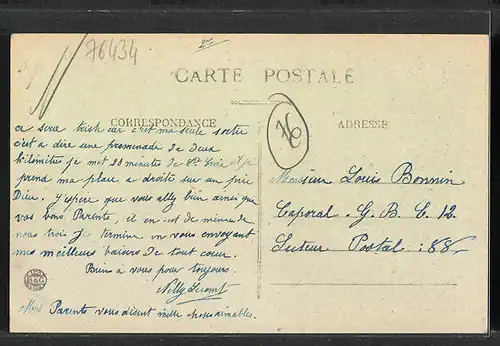 76434
CARTE POSTALE
CORRESPONDANCE
ADRESSE
76
ce sera triste car c'est ma seule sortie
c'est a dire une promenade de deux
kilomètres je met 20 minutes de
prend ma place a droite sur un prie
Dieu. J'espère que vous allez bien ainsi que
vos bons Parents, il en est de même de
nous trois Je termine en vous envoyant
mes meilleurs baisers de tout cœur.
Bien a vous pour toujours.
Nelly
Mes Parents vous disent mille choses aimables.
Monsieur Louis Bonnin
Caporal. G. B. C. 12
Secteur Postal : 88